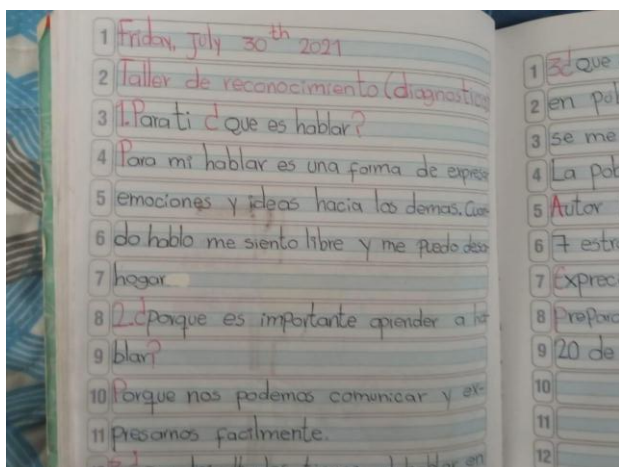 1 Friday, July 30th 2021
2 Taller de reconocimiento (diagnostico)
3 1. Para ti ¿Que es hablar?
4 Para mi hablar es una forma de expresar
5 emociones y ideas hacia los demas. Cuan-
6 do hablo me siento libre y me puedo desa-
7 hogar
8 2. ¿porque es importante aprender a ha-
9 blar?
10 Porque nos podemos comunicar y ex-
11 presarnos facilmente.
1 3¿ Que
2 en
3 se me
4 La
5 Autor
6 7
7 Exprec
8
9 20 de
10
11
12